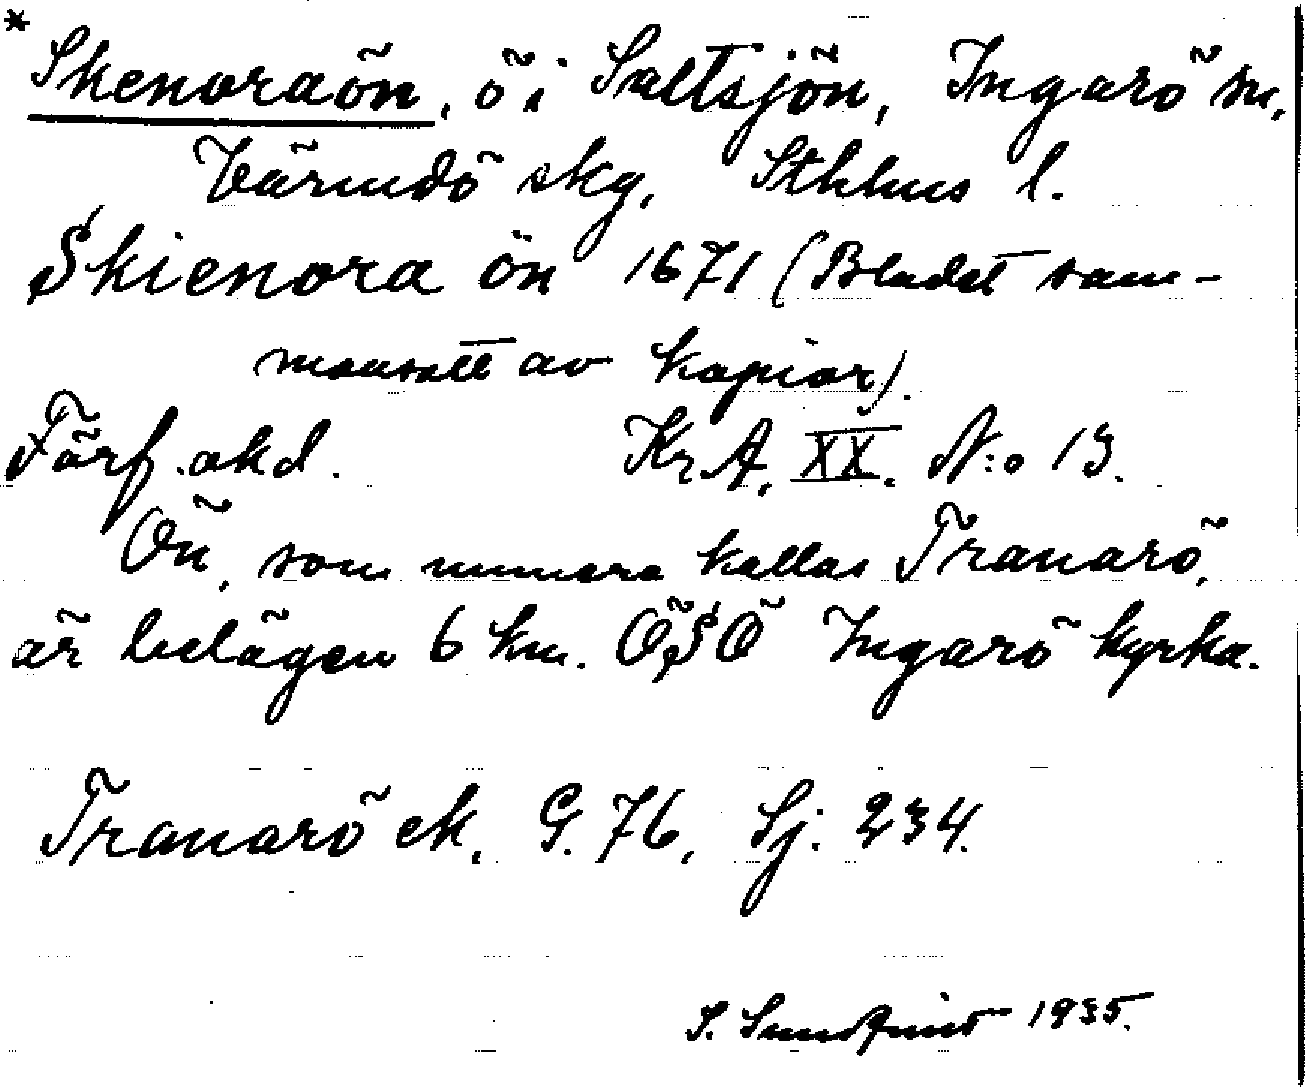 * Skenoraön, ö i Saltsjön, Ingarö sn,
Värmdö skg, Sthlms l.
Skienora ön 1671 (Bladet sam-
mansatt av kopior).
Förf. okd. KrA, XX. N:o 13.
Ön, som numera kallas Tranarö,
är belägen 6 km. ÖSÖ Ingarö kyrka.
Tranarö ek, G. 76, Sj. 234.
S. Sundqvist 1935.